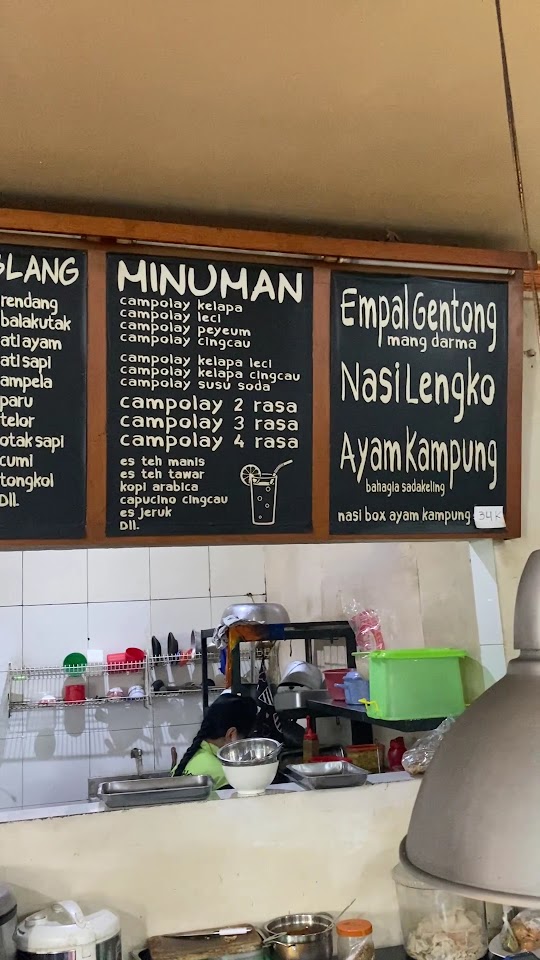 BLANG
rendang
balakutak
ati ayam
ati sapi
ampela
paru
telor
otak sapi
cumi
tongkol
Dll.
MINUMAN
campolay kelapa
campolay leci
campolay peyeum
campolay cingcau
campolay kelapa leci
campolay kelapa cingcau
campolay susu soda
campolay 2 rasa
campolay 3 rasa
campolay 4 rasa
es teh manis
es teh tawar
kopi arabica
capucino cingcau
es jeruk
Dll.
Empal Gentong
mang darma
Nasi Lengko
Ayam Kampung
bahagia sadakeling
nasi box ayam kampung 34K